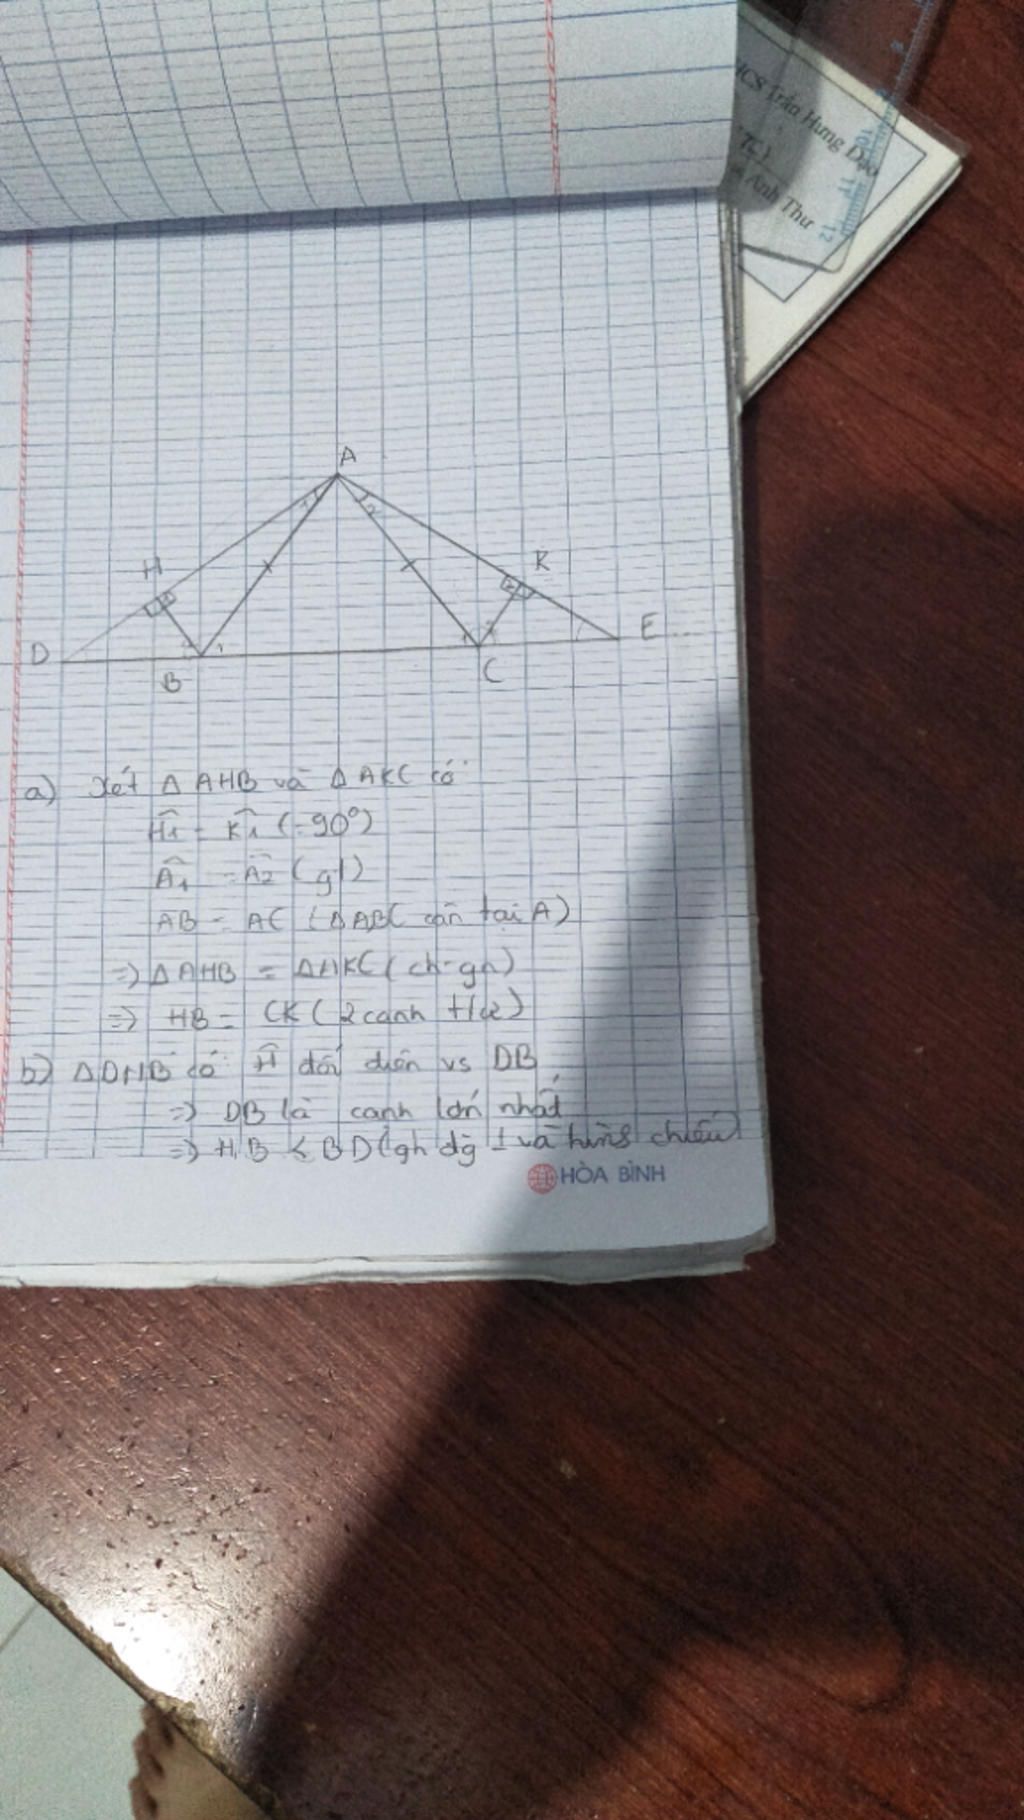 ICS Trần Hưng Đạo
Anh Thư
10
11
12
A
H
K
D
B
C
E
a) Xét Δ AHB và Δ AKC có
Ĥ₁ = K̂₁ (=90°)
Â₁ = Â₂ (gt)
AB = AC (ΔABC cân tại A)
=> ΔAHB = ΔAKC (ch-gn)
=> HB = CK (2 cạnh t/ứ)
b) ΔDHB có Ĥ đối diện vs DB
=> DB là cạnh lớn nhất
=> HB < BD (qh đg ⊥ và hình chiếu)
HÒA BÌNH